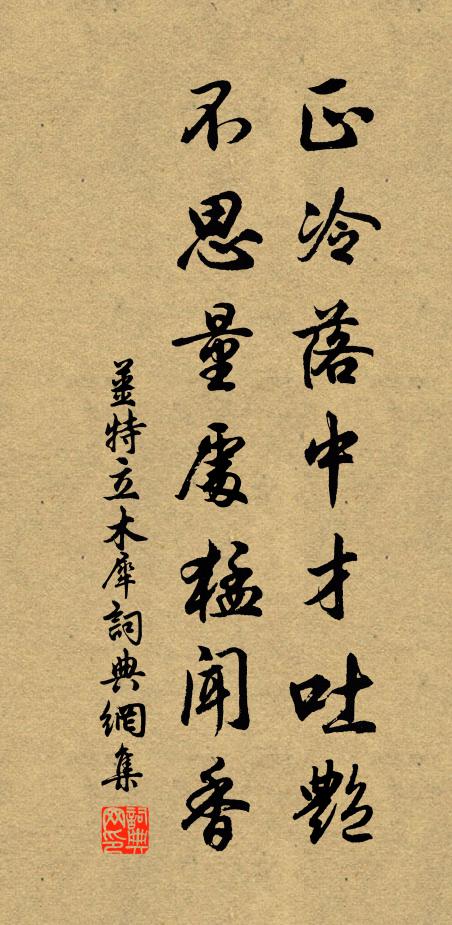 正冷落中才吐艷
不思量處猛聞香
姜特立木犀詞典網集
詞典網印